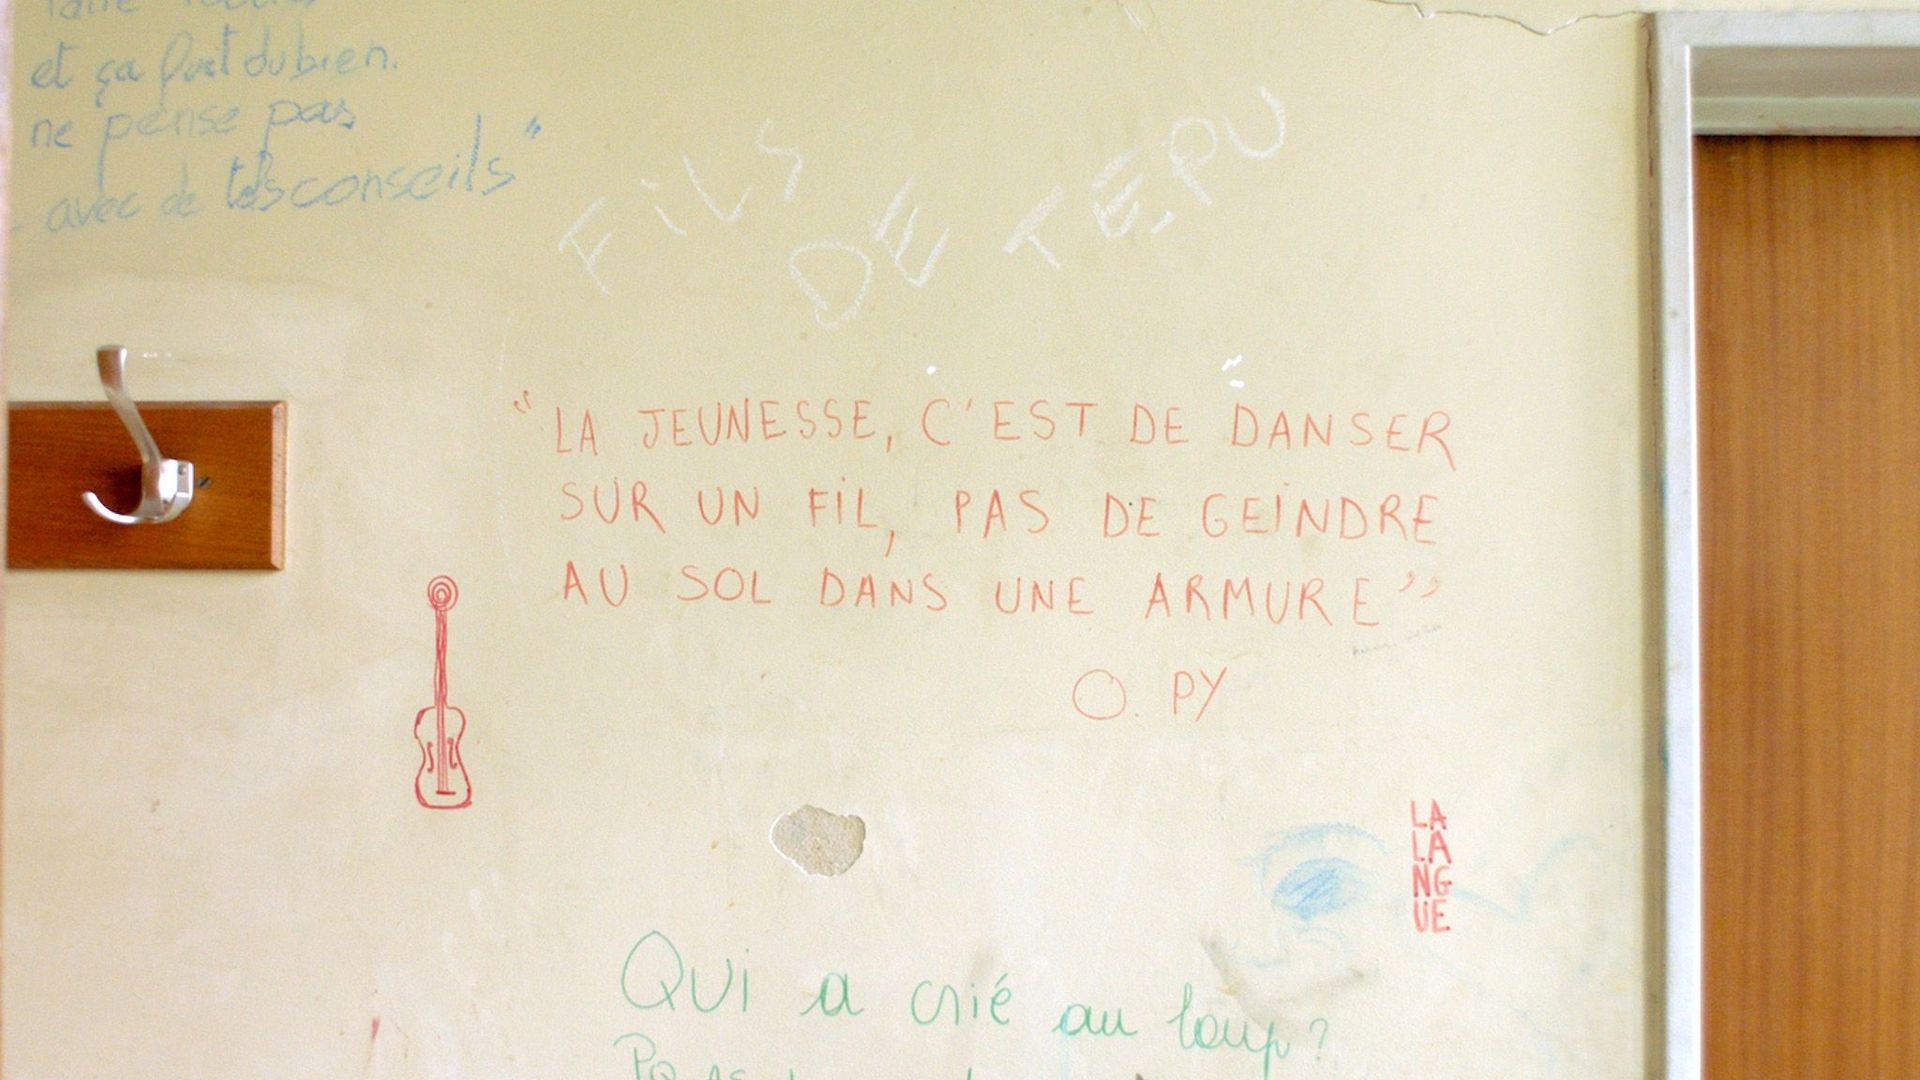 et ça fait du bien.
ne pense pas
avec de tels conseils"
FILS DE TEPU
"LA JEUNESSE, C'EST DE DANSER
SUR UN FIL, PAS DE GEINDRE
AU SOL DANS UNE ARMURE"
O. PY
LA
LA
NG
UE
Qui a crié au loup?